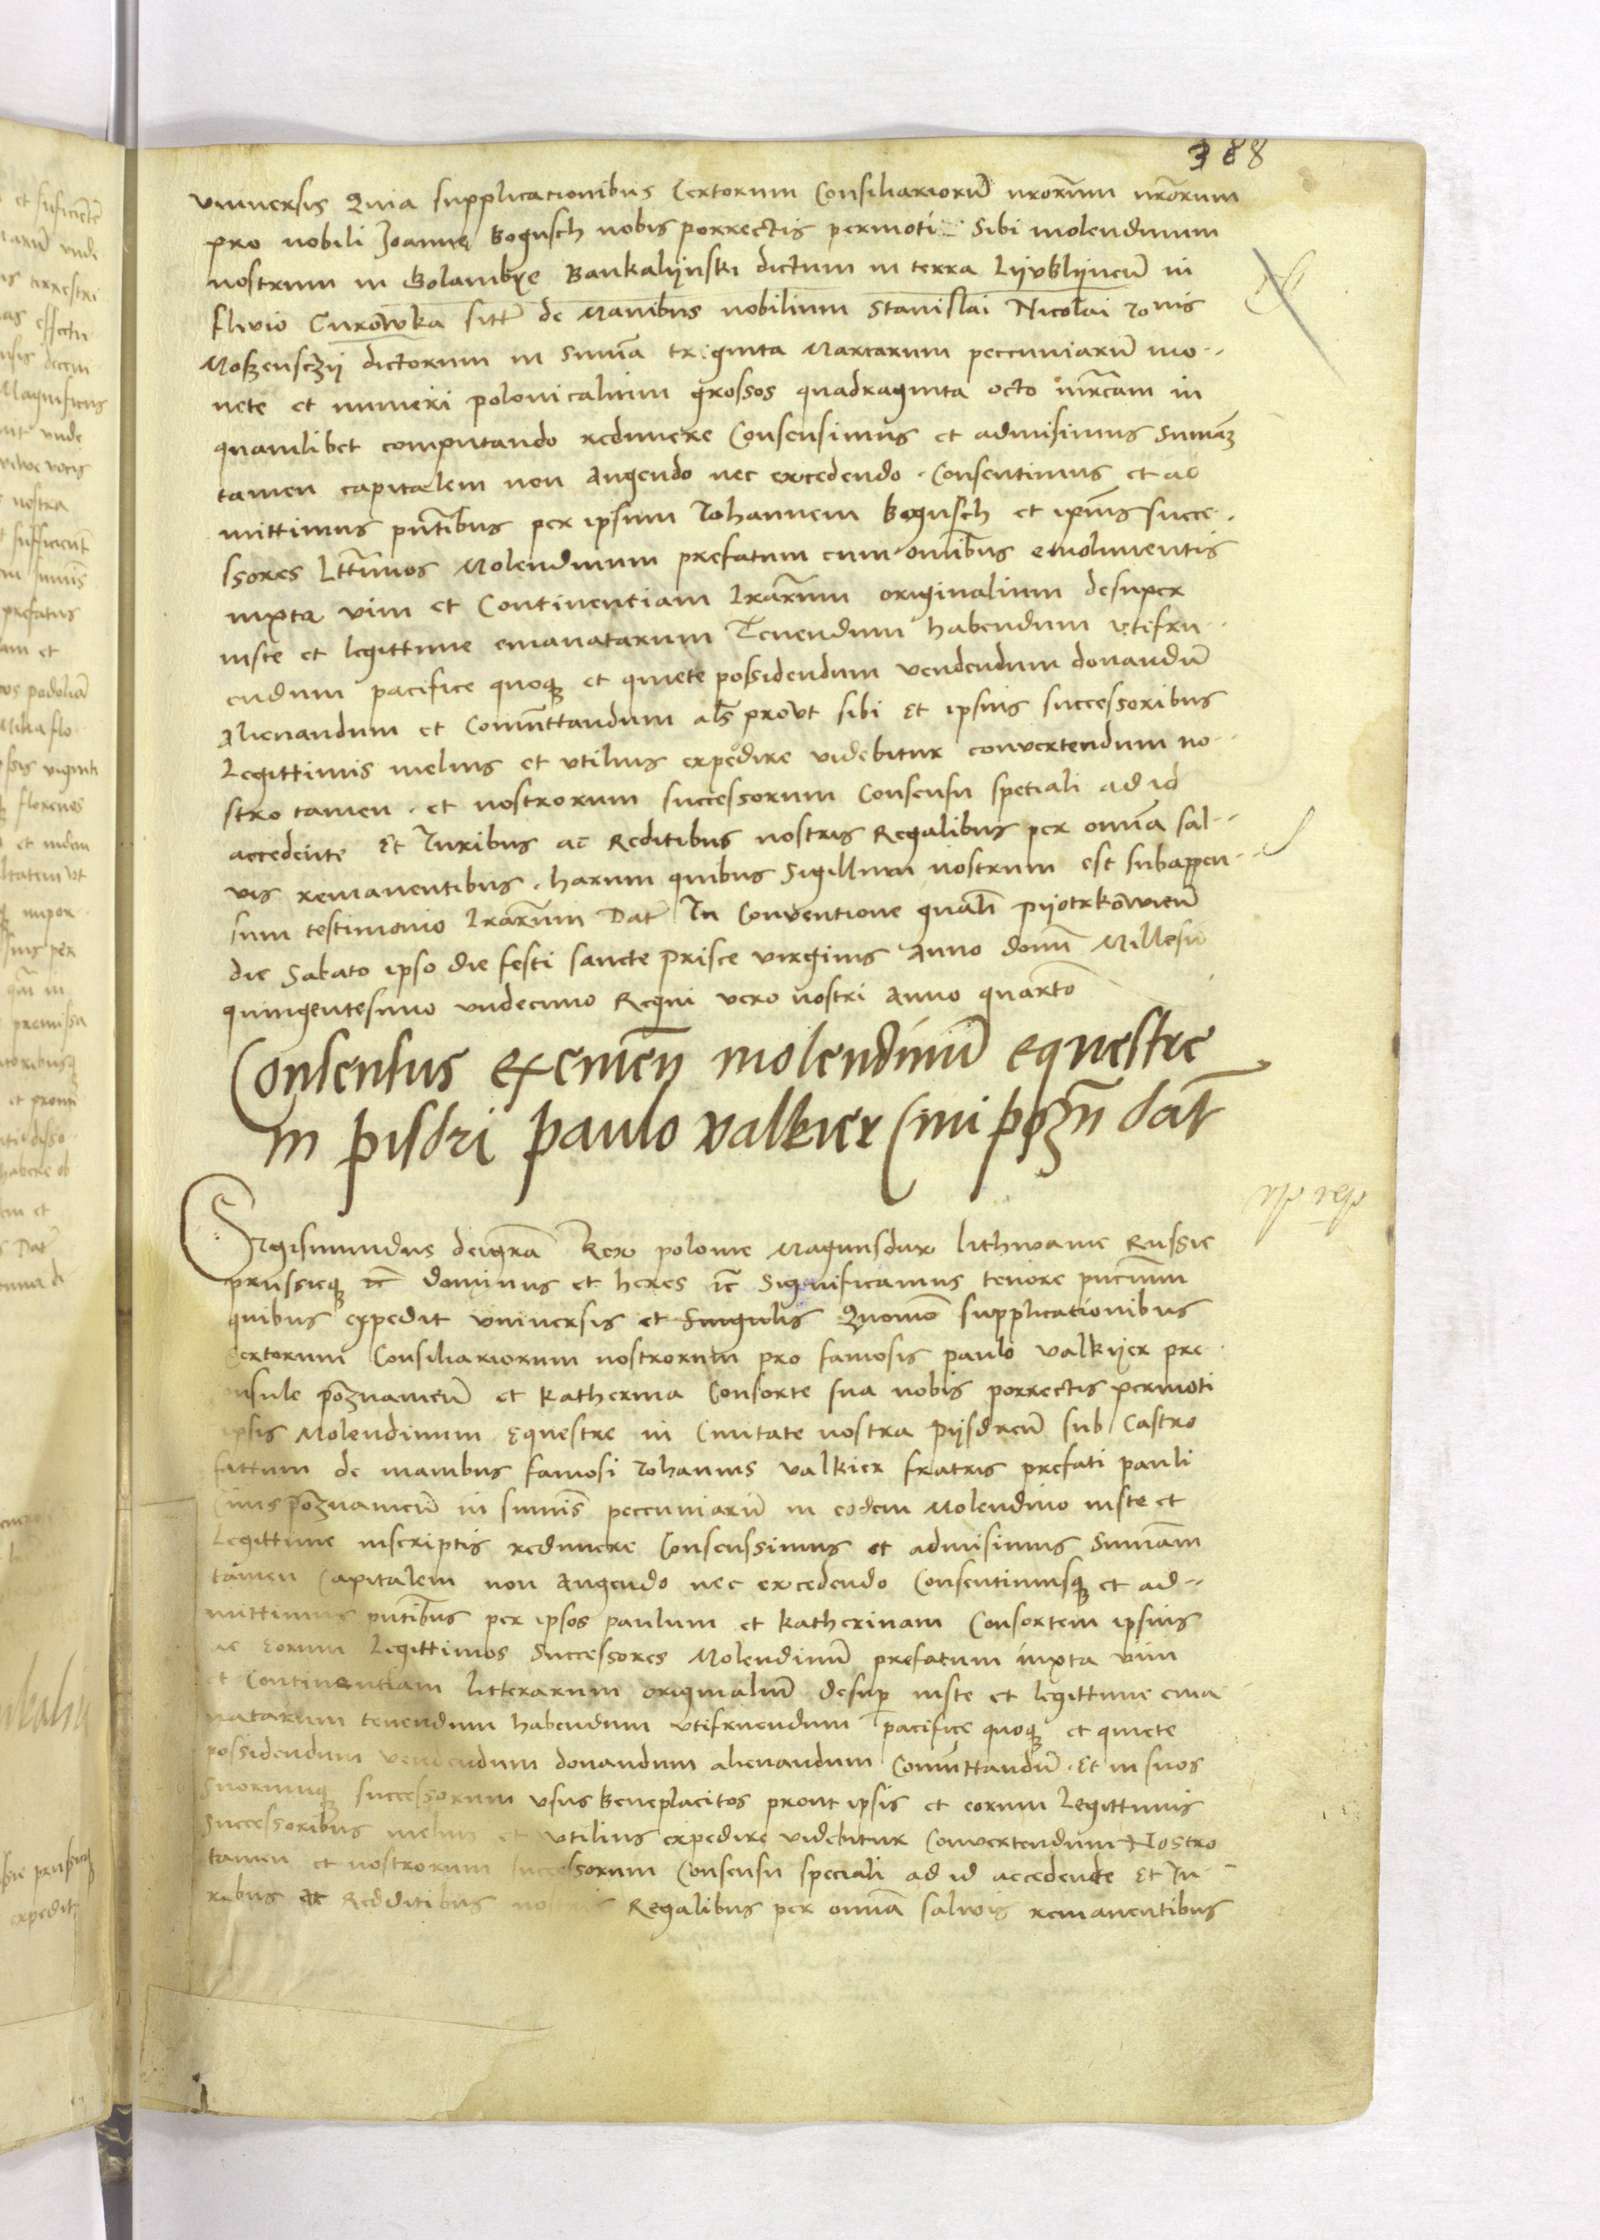 388
vniuersis Quia supplicacionibus Certorum Consiliariorū nrorum nrorum
pro nobili Joanne Bogusch nobis porrectis permoti Sibi molendinum
nostrum in Golambye Bankalyinski dictum in terra Lyvblyinen̄ in
fluuio Curowka sitū de Manibus nobilium Stanislai Nicolai Ionis
Moszensczÿ dictorum in Sum̄a triginta Marcarum peccuniarū mo-
nete et numeri polonicalium grossos quadraginta octo mrcam in
quamlibet computando redimere Consensimus et admisimus Sum̄am
tamen capitalem non Augendo nec excedendo . Consentimus et ad
mittimus pn̄tibus per ipsum Johannem Bogusch et ipius succe .
ssores Ltt̄imos Molendinum prefatum cum om̄ibus emolumentis
iuxta vim et Continentiam lr̄arum originalium desuper
iuste et legittime emanatarum Tenendum habendum vtifru-
endum pacifice quoq et quiete possidendum vendendum donandū
Alienandum et Com̄uttandum als̄ provt sibi Et ipsius successoribus
Legittimis melius et vtilius expedire videbitur convertendum no-
stro tamen . et nostrorum successorum Consensu spetiali ad id
accedente Et Iuribus ac Reditibus nostris Regalibus per omn̄a sal-
vis remanentibus . harum quibus Sigillum nostrum est subappen-
sum testimonio lr̄arum Dat̄ In Conventione gnāli pyotrkowien̄
die Sabato ipso die festi sancte Prisce virginis Anno domī Millesiō
quingentesimo vndecimo Regni vero nostri Anno quarto
Consensus exemen̄ molendinū equestre
in pisdri paulo valkier Ciui pozn̄ dat̄
Sigismundus deigrā Rex polonie Magnusdux lithwanie Russie
prussieq ꝛc dominus et heres ꝛc Significamus tenore pn̄cium
quibus expedit vniuersis et Singulis Quomō supplicationibus
Certorum Consiliariorum nostrorum pro famosis paulo valkyer pre
onsule poznanien̄ et katherina Consorte sua nobis porrectis permoti
ipsis Molendinum Equestre in Ciuitate nostra Pyisdren̄ sub Castro
fattum de manibus famosi Johannis valkier fratris prefati pauli
Ciuis Poznanien̄ in sum̄is peccuniarū in eodem Molendino iuste et
Legittime inscriptis redimere Consenssimus et admisimus Sum̄am
tamen Capitalem non Augendo nec excedendo Consentimusq et ad-
mittimus pn̄tibus per ipsos paulum et katherinam Consortem ipsius
ac Eorum Legittimos Successores Molendinū prefatum iuxta vim
et Continentiam litterarum originaliū desup iuste et legittime ema
natarum tenendum habendum vtifruendum pacifice quoq et quiete
possidendum vendendum donandum alienandum Com̄uttandū . Et in suos
Suorumq successorum vsus beneplacitos prout ipsis et eorum Legittimis
Successoribus melius et vtilius expedire videbitur Convertendum Nostro
tamen et nostrorum successorum Consensu speciali ad id accedente Et Iu-
ribus ac Redditibus nostris Regalibus per omn̄a salwis remanentibus